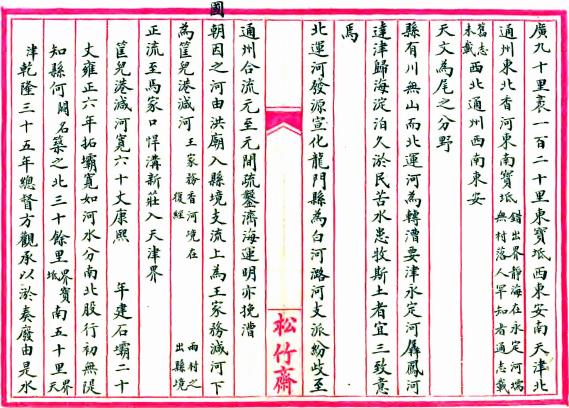 廣九十里袤一百二十里東寶坻西東安南天津北
通州東北香河東南寶坻錯出界靜海在永定河端無村落人罕知者通志載
舊志未載西北通州西南東安
天文為尾之分野
縣有川無山而北運河為轉漕要津永定河羼鳳河
達津歸海淀泊久淤民苦水患牧斯土者宜三致意
馬
北運河發源宣化龍門縣為白河潞河支派紛歧至
松竹齋
通州合流元至元間疏鑿濟海運明亦挽漕
國朝因之河由洪廟入縣境支流上為王家務減河下
為筐兒港減河王家務香河境在雨村之復經出縣境
正流至馬家口悍溝新莊入天津界
筐兒港減河寬六十丈康熙 年建石壩二十
丈雍正六年拓壩寬如河水分南北股行初無隄
知縣何闕名築之北三十餘里界寶坻南五十里界天
津乾隆三十五年總督方觀承以淤奏廢由是水